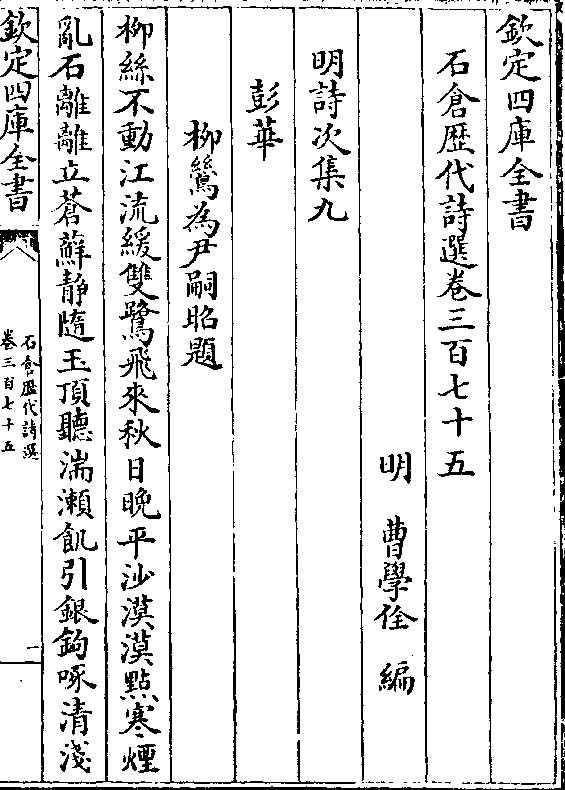 欽定四庫全書
石倉歴代詩選卷三百七十五
明　曹學佺　編
明詩次集九
彭華
柳鷺為尹嗣昭題
柳絲不動江流緩雙鷺飛來秋日晚平沙漠漠點寒煙
亂石離離立蒼蘚静隨玉頂聽湍瀨飢引銀鉤啄清淺
欽定四庫全書
石倉歴代詩選
卷三百七十五
一